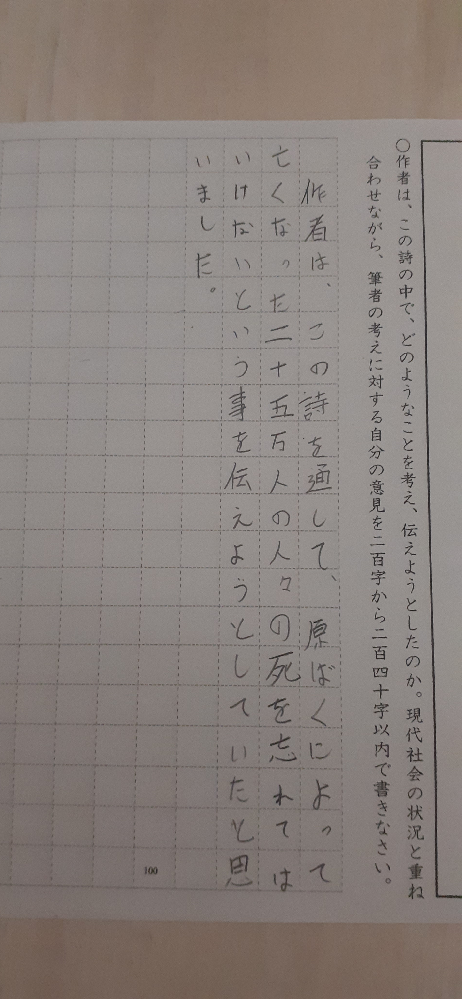 ○作者は、この詩の中で、どのようなことを考え、伝えようとしたのか。現代社会の状況と重ね
合わせながら、筆者の考えに対する自分の意見を二百字から二百四十字以内で書きなさい。
作者は、この詩を通して、原ばくによって
亡くなった二十五万人の人々の死を忘れては
いけないという事を伝えようとしていたと思
いました。
100